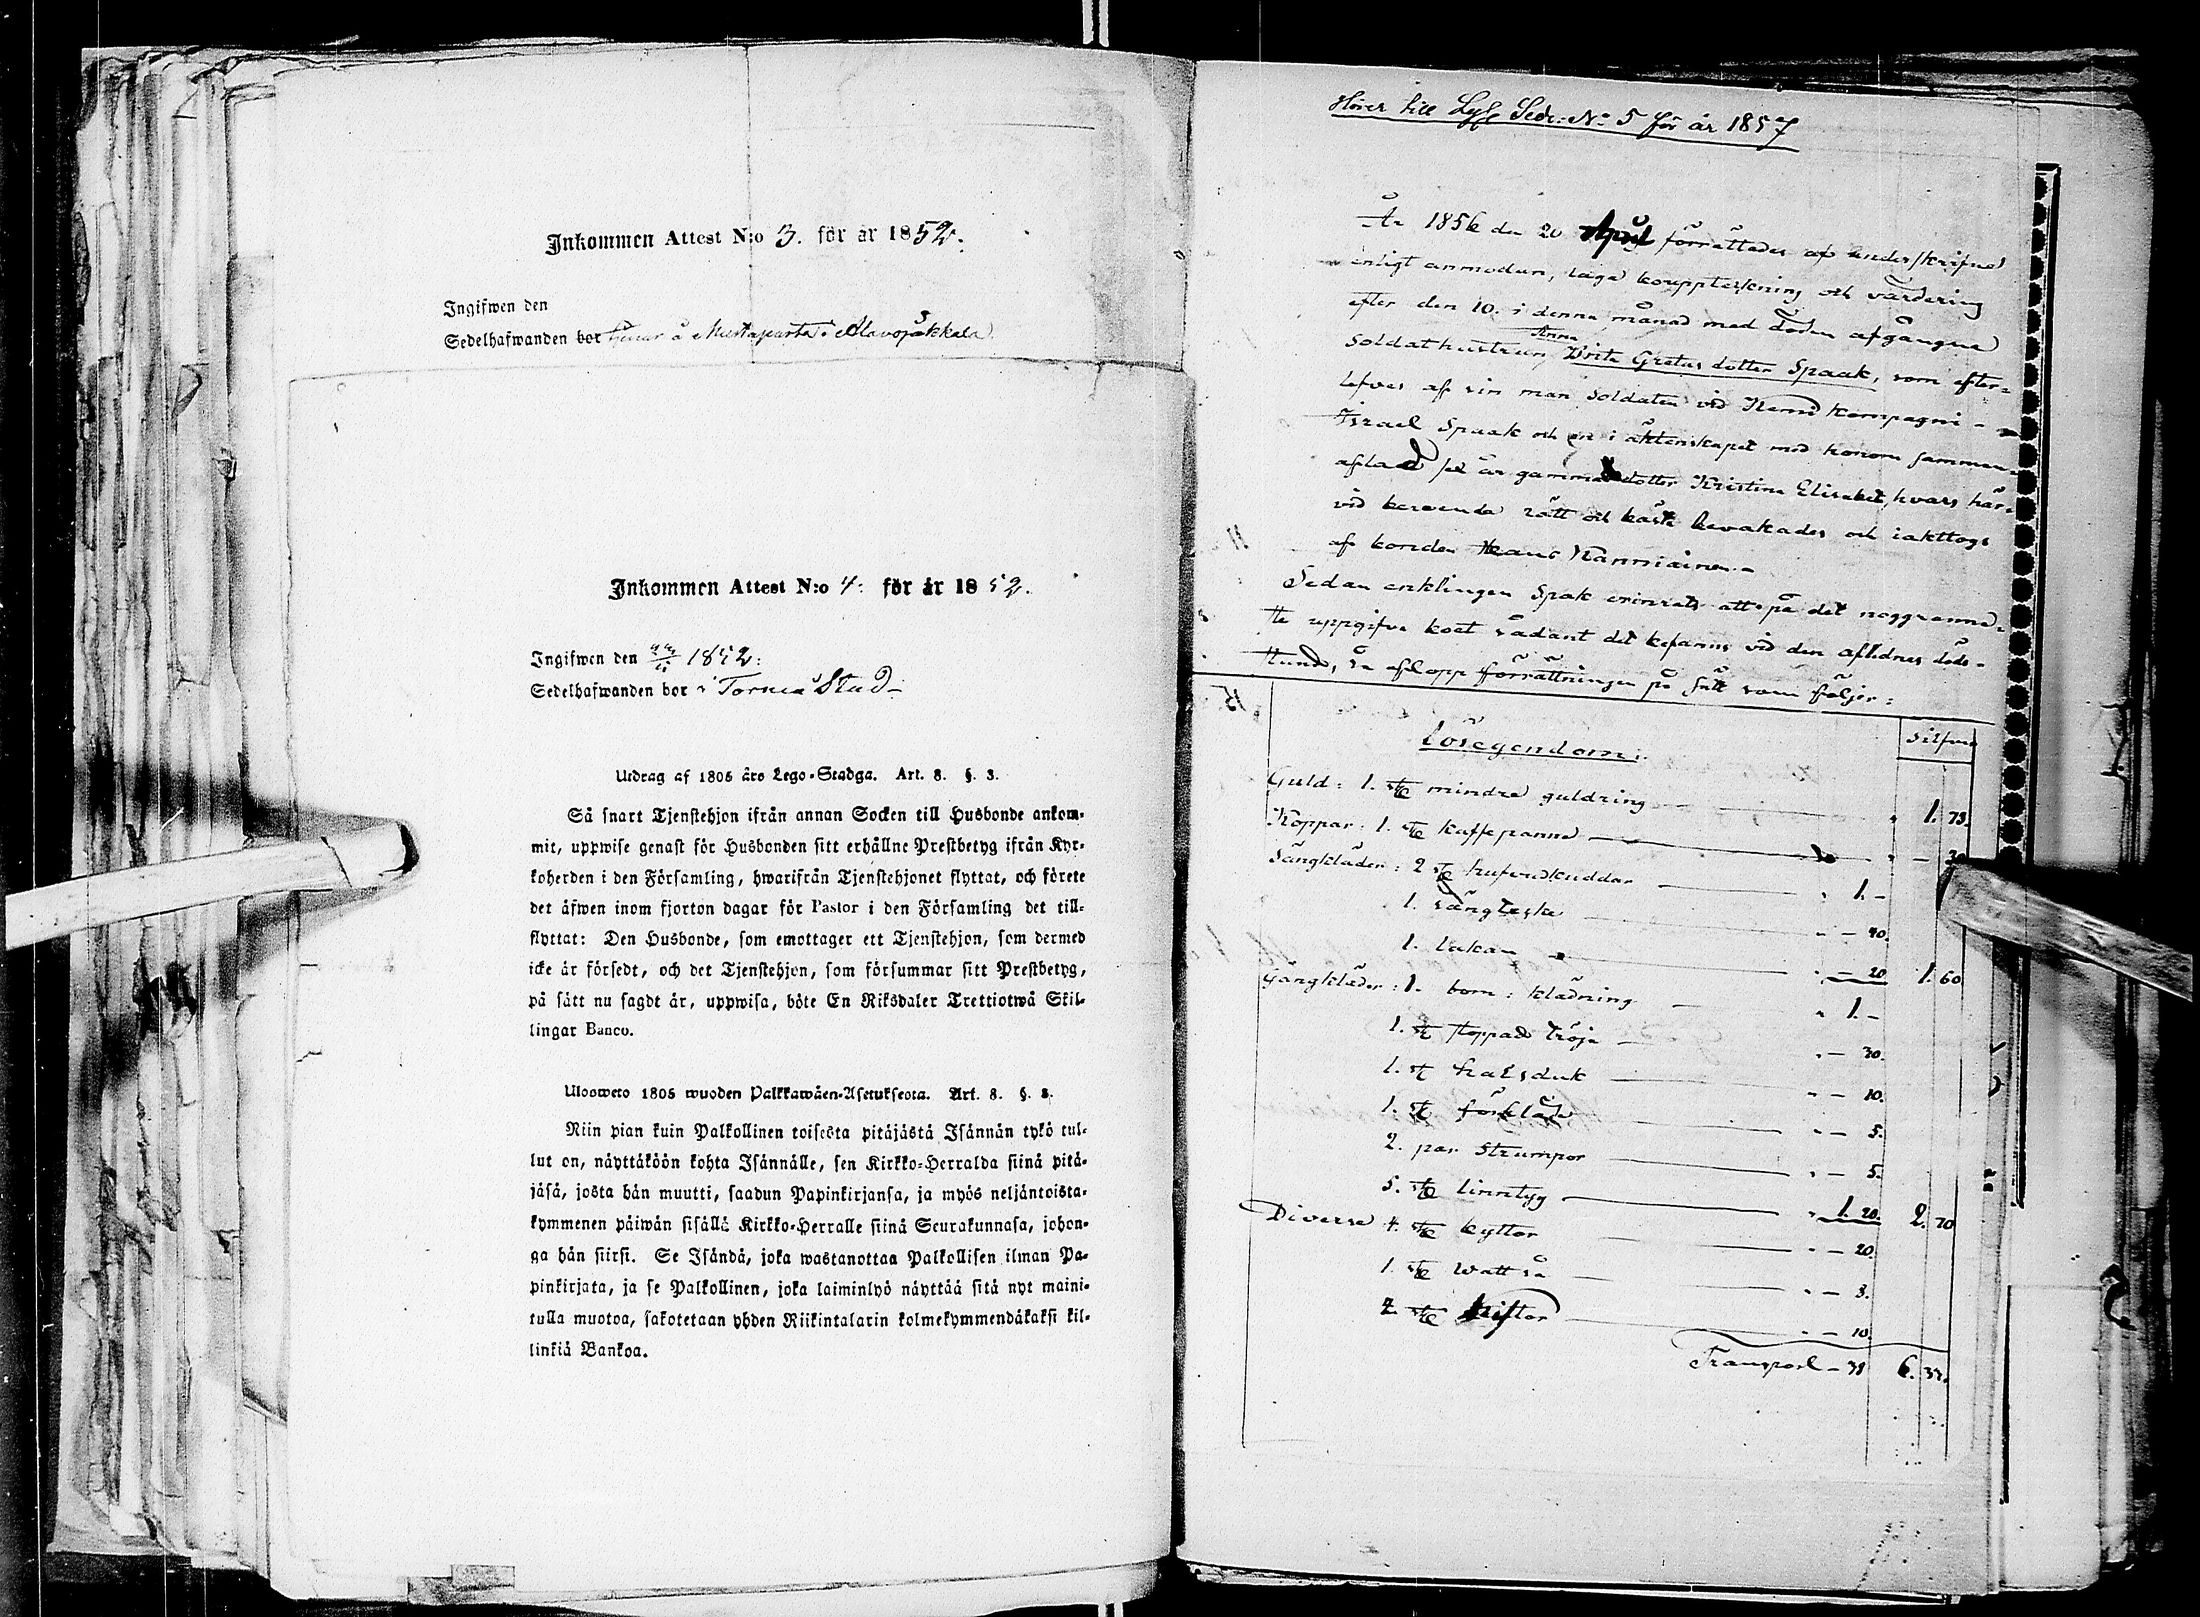 Inkommen Attest N:o 3. för år 1852.
Ingifwen den
Sedelhafwanden bor å i Alavojakkala
Inkommen Attest N:o 4: för år 1852.
Ingifwen den 1852:
Sedelhafwanden bor i Torneå Stad
Utdrag af 1805 års Lego-Stadga. Art. 8. §. 3.
Så snart Tjenstehjon ifrån annan Socken till Husbonde ankom-
mit, uppwise genast för Husbonden sitt erhållne Prestbetyg ifrån Kyr-
koherden i den Församling, hwarifrån Tjenstehjonet flyttat, och förete
det äfwen inom fjorton dagar för Pastor i den Församling det till-
flyttat: Den Husbonde, som emottager ett Tjenstehjon, som dermed
icke är försedt, och det Tjenstehjon, som försummar sitt Prestbetyg,
på sätt nu sagdt är, uppwisa, böte En Riksdaler Trettiotwå Skil-
lingar Banco.
Ulosweto 1805 wuoden Palkkawäen-Asetuksesta. Art. 8. §. 3.
Niin pian kuin Palkollinen toisesta pitäjästä Isännän tykö tul-
lut on, näyttäköön kohta Isännälle, sen Kirkko-Herralda siinä pitä-
jäsä, josta hän muutti, saadun Papinkirjansa, ja myös neljäntoista-
kymmenen päiwän sisällä Kirkko-Herralle siinä Seurakunnasa, johon-
ga hän siirsi. Se Isändä, joka wastanottaa Palkollisen ilman Pa-
pinkirjata, ja se Palkollinen, joka laiminlyö näyttää sitä nyt maini-
tulla muotoa, sakotetaan yhden Riikintalarin kolmekymmendäkaksi kil-
linkiä Bankoa.
Hörer till Lysn Sedr: No 5 för år 1857
År 1856 den 20 April förrättades af underskrifne
enligt anmodan, laga bouppteckning och värdering
efter den 10. i denna månad med döden afgångna
Anna
soldathustrun Brita Greta dotter Spaak, som efter-
lefves af sin man soldaten vid Kemi kompagni -
Israel Spaak och en i äktenskapet med honom samman-
aflad år gammal dotter Kristina Elisabet, hvars här-
vid beroende rätt och bästa bevakades och iakttogs
af bonden Hans Kanniainen.
Sedan enklingen Spak erinrats att på det noggranna-
ste uppgifva boet sådant det befanns vid den aflidnes döds-
stund, så aflopp förrättningen på sätt som följer:
Lösegendom: Silfver
Guld: 1. st mindre guldring " 1. 75.
Koppar: 1. st kaffepanna " - 30
Sängkläder: 2 st hufvudkuddar " 1. -
1. sängteske " - 40.
1. lakan " - 20 1. 60
Gångkläder: 1. bom: klädning " 1. -
1. st stoppad tröja " - 30.
1. st halsduk " - 10.
1. st förkläde " - 5.
2. par strumpor " - 5.
5. st linntyg " 1. 20. 2. 70
Diverse 4. st byttor " - 20.
1. st wattså " - 8.
2. st kistor " - 10.
Transport - 38 6. 35.